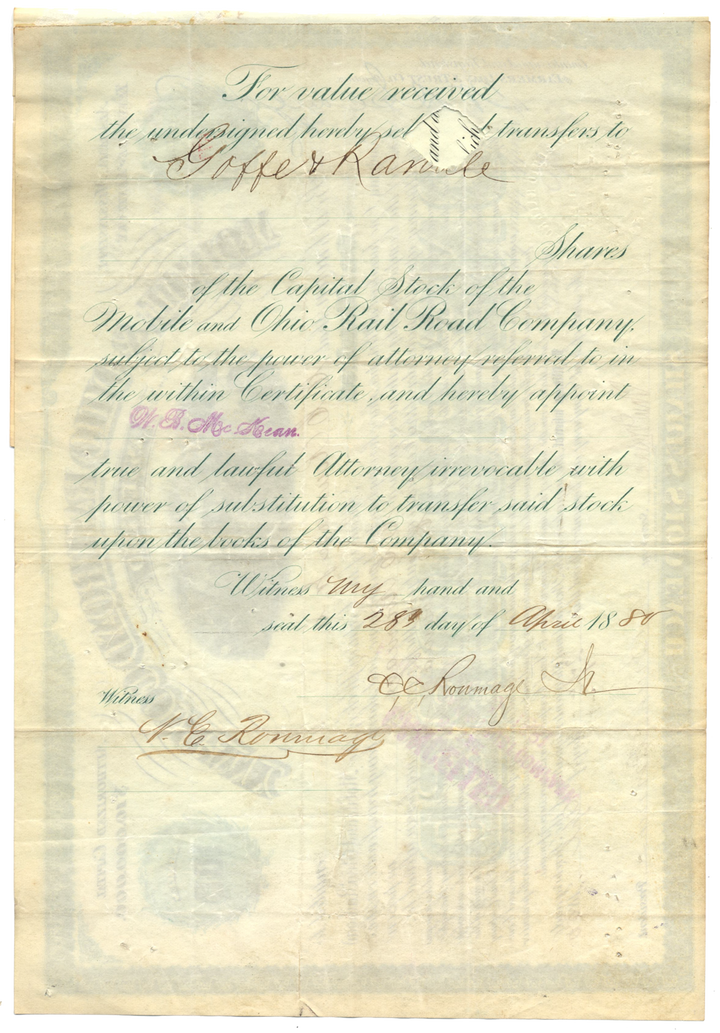 For value received
the undersigned hereby sel transfers to
and
Goffe & Randle
Shares
of the Capital Stock of the
Mobile and Ohio Rail Road Company,
subject to the power of attorney referred to in
the within Certificate, and hereby appoint
W. B. McKean.
true and lawful Attorney, irrevocable with
power of substitution to transfer said stock
upon the books of the Company.
Witness my hand and
seal this 28th day of April 1880
C C Ronmage Jr.
Witness
N. C. Ronmage